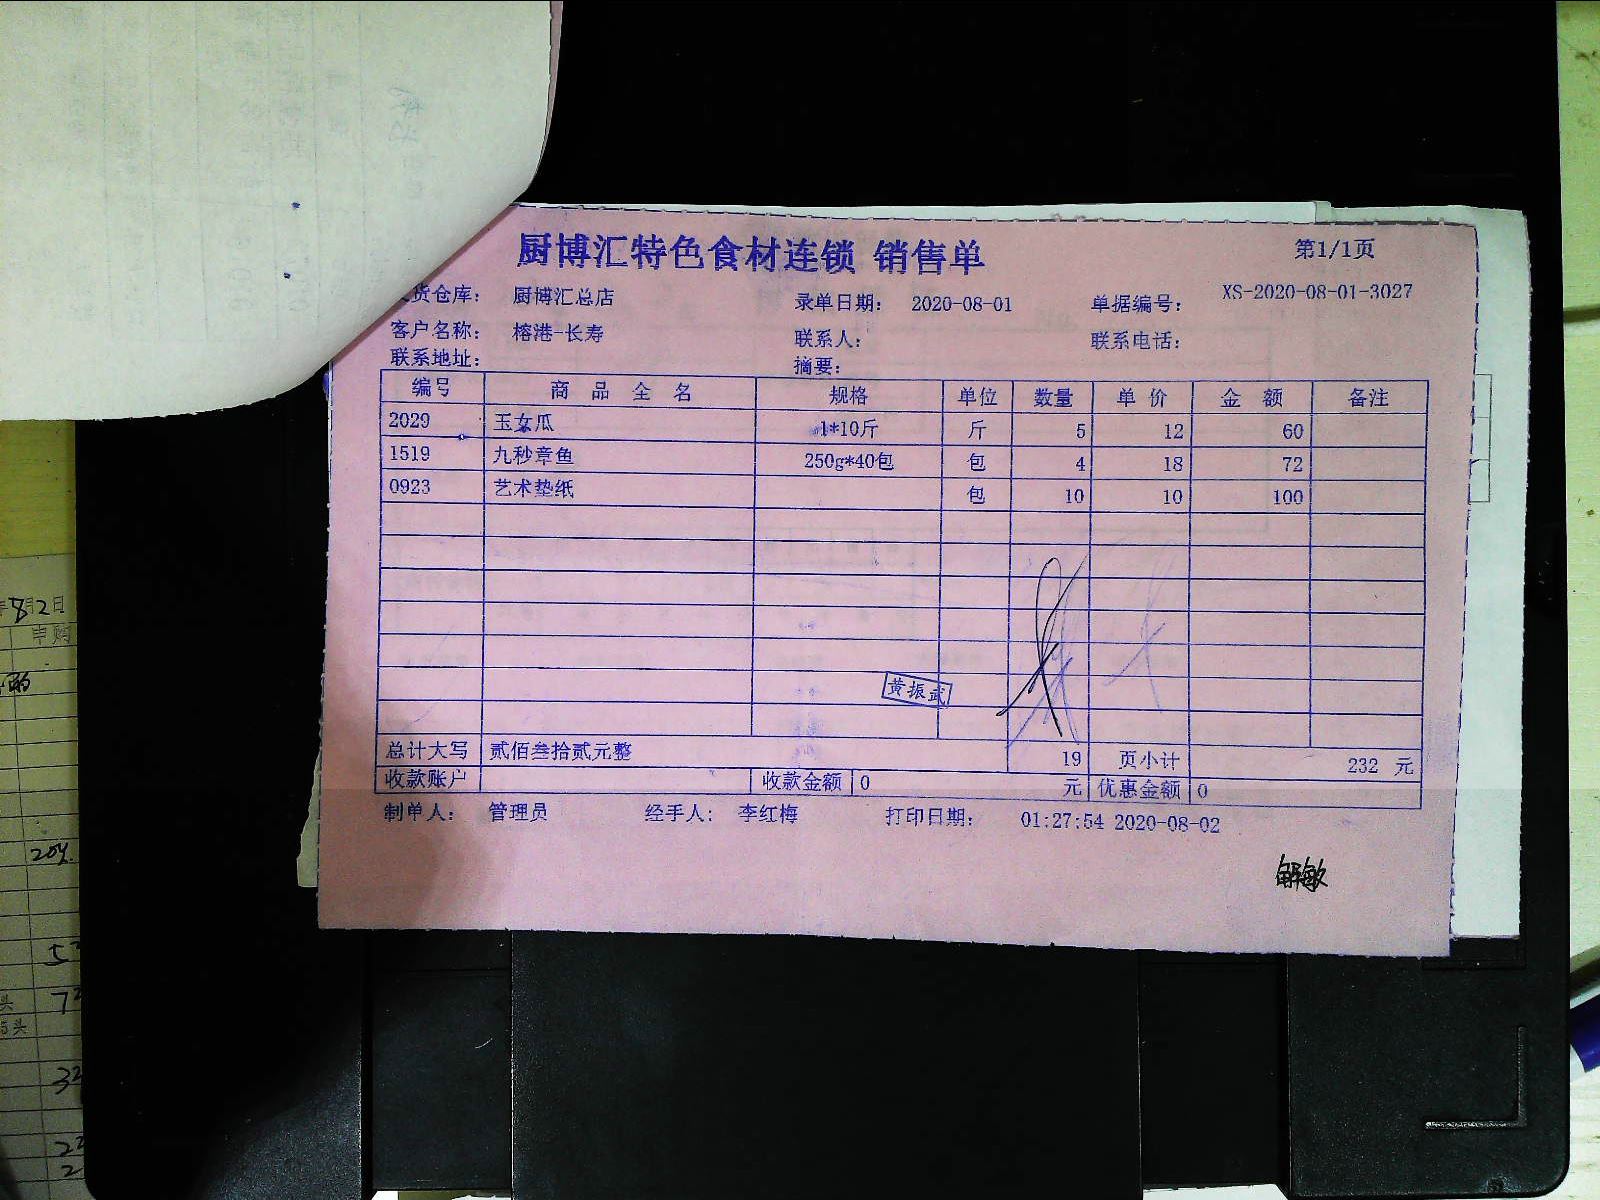 厨博汇特色食材连锁 销售单
第1/1页
货仓库： 厨博汇总店 录单日期： 2020-08-01 单据编号： XS-2020-08-01-3027
客户名称： 榕港-长寿 联系人： 联系电话：
联系地址： 摘要：
编号 商品全名 规格 单位 数量 单价 金额 备注
2029 玉女瓜 1*10斤 斤 5 12 60
1519 九秒章鱼 250g*40包 包 4 18 72
0923 艺术垫纸 包 10 10 100
黄振武
总计大写 贰佰叁拾贰元整 19 页小计 232 元
收款账户 收款金额 0 元 优惠金额 0
制单人： 管理员 经手人： 李红梅 打印日期： 01:27:54 2020-08-02
解敏
8月2日
申购